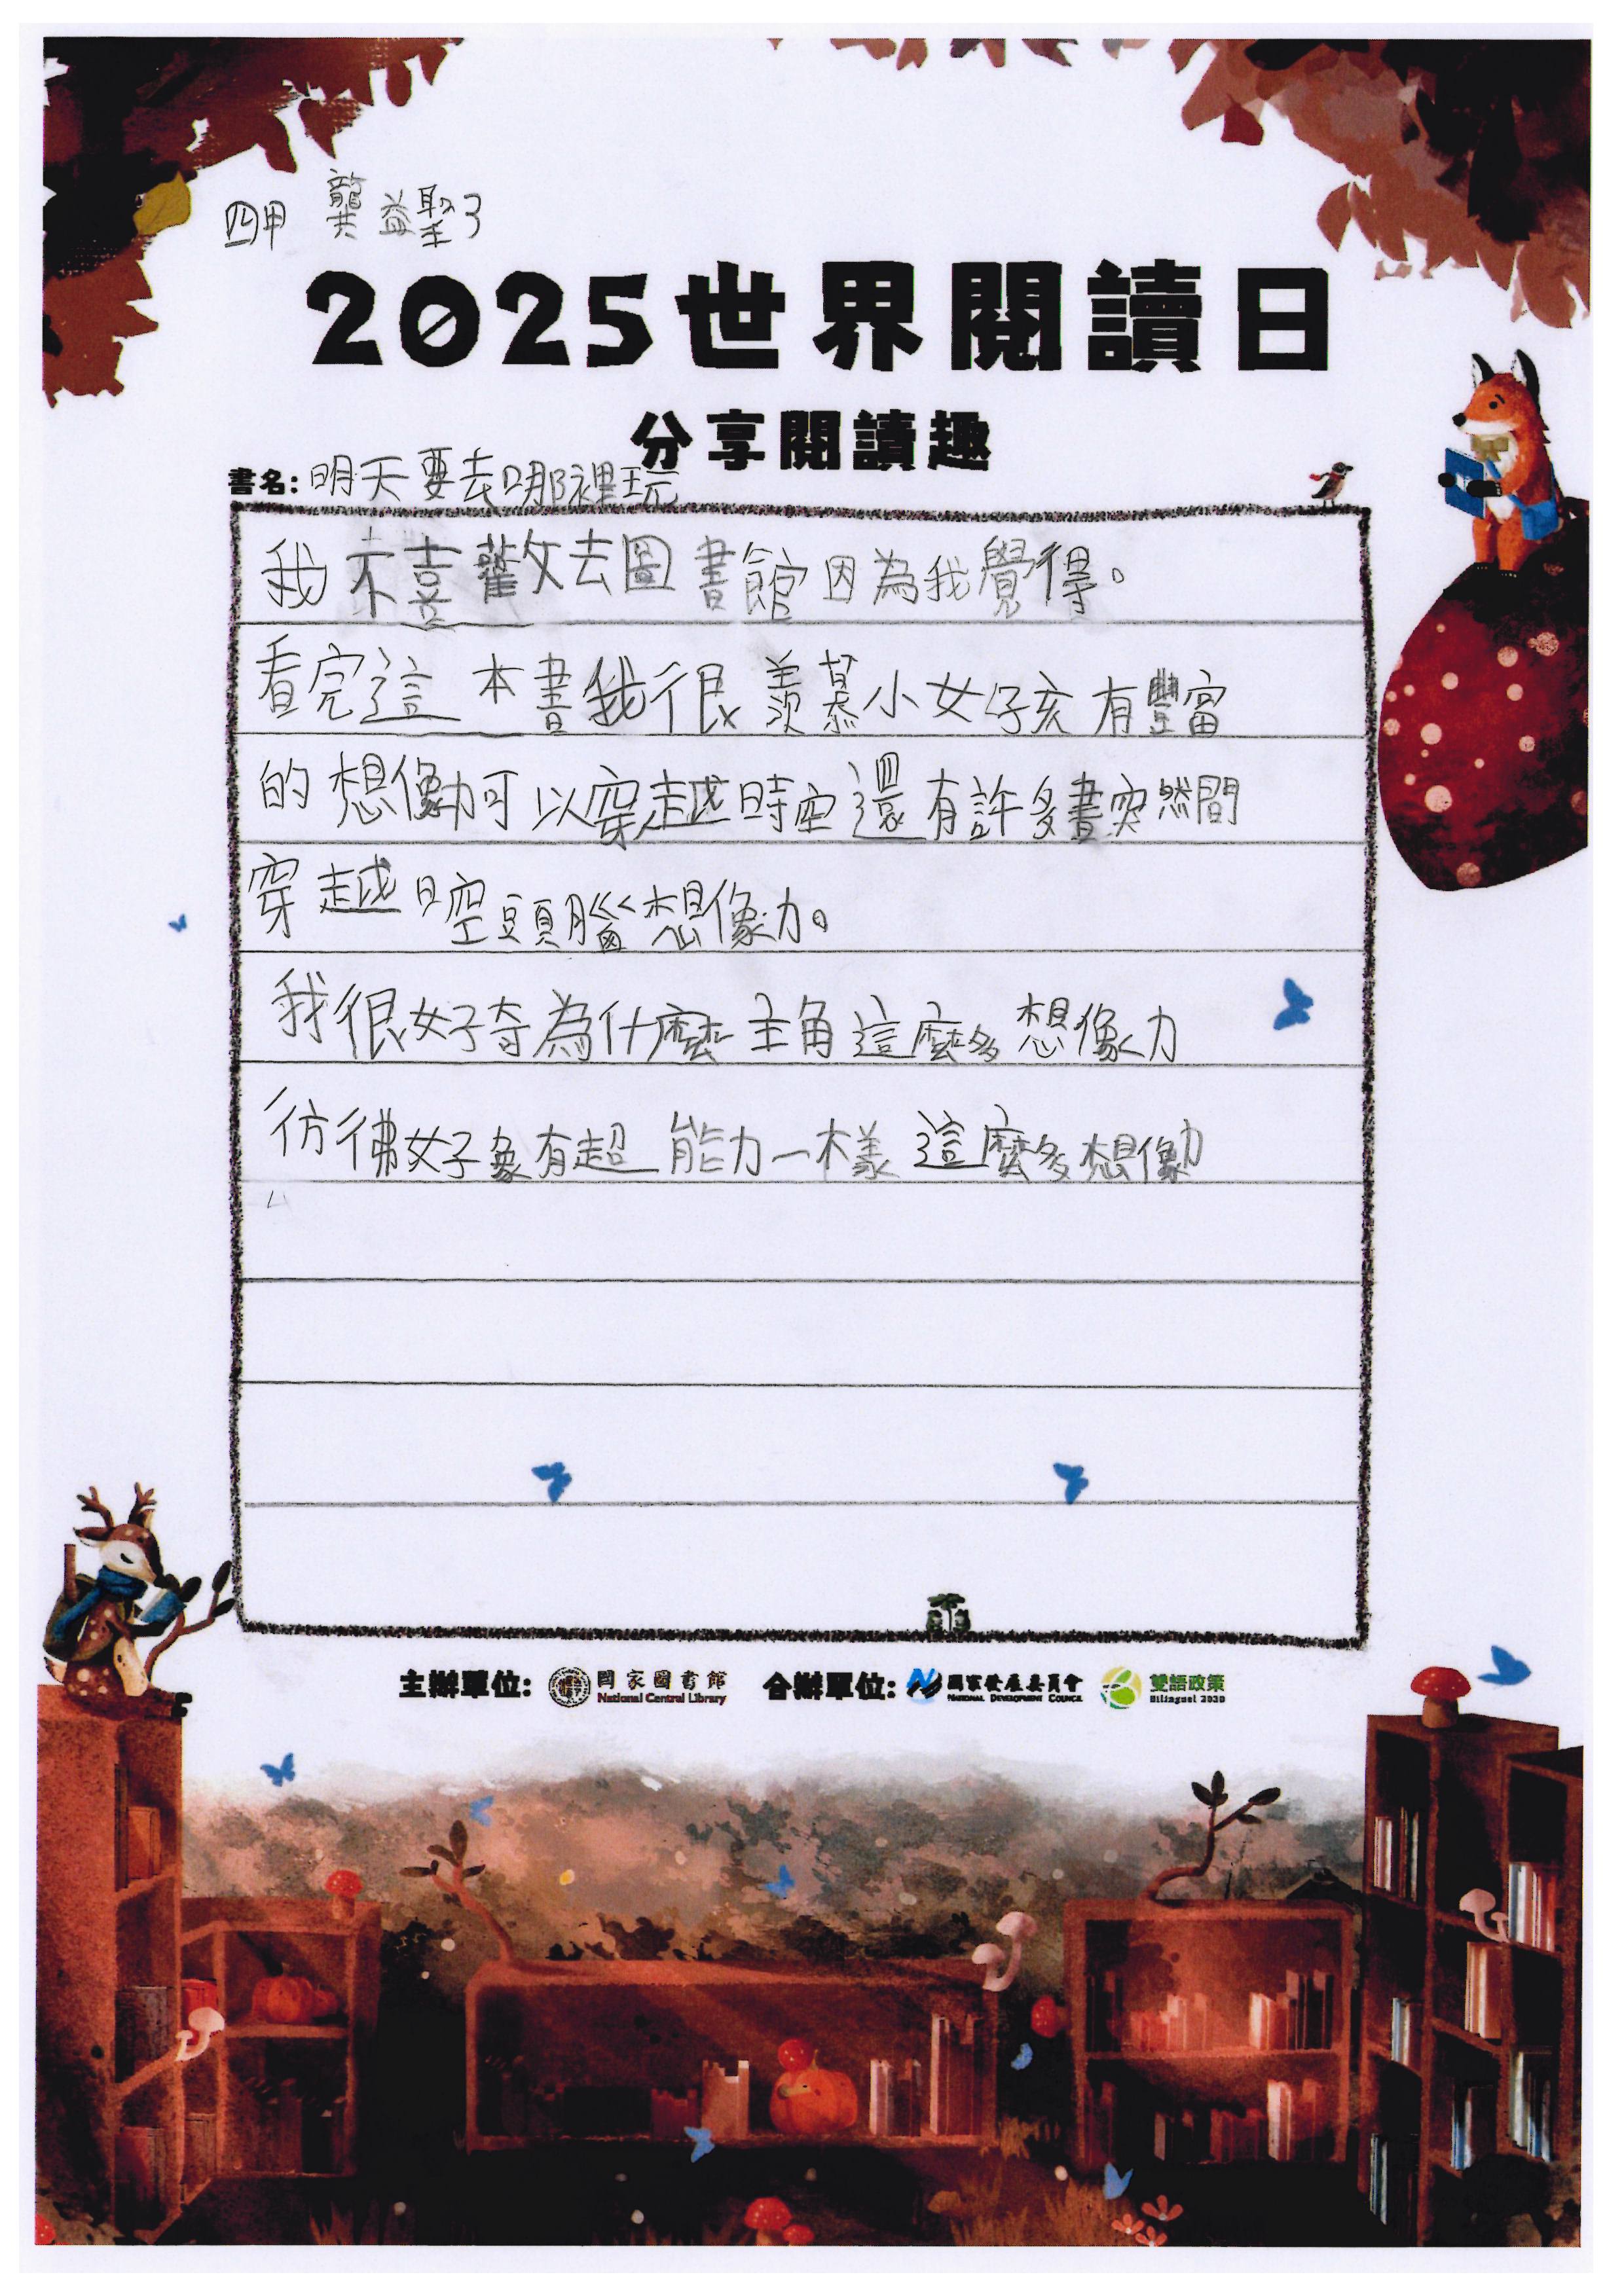 四甲 龔益聖3
2025世界閱讀日
分享閱讀趣
書名:明天要去哪裡玩
我未喜歡去圖書館因為我覺得。
看完這本書我很羨慕小女孩有豐富
的想像力可以穿越時空還有許多書突然間
穿越時空頭腦想像力。
我很好奇為什麼主角這麼多想像力
彷彿好象有超能力一樣這麼多想像力
主辦單位: 國家圖書館 National Central Library 合辦單位: 國家發展委員會 National Development Council 雙語政策 Bilingual 2030